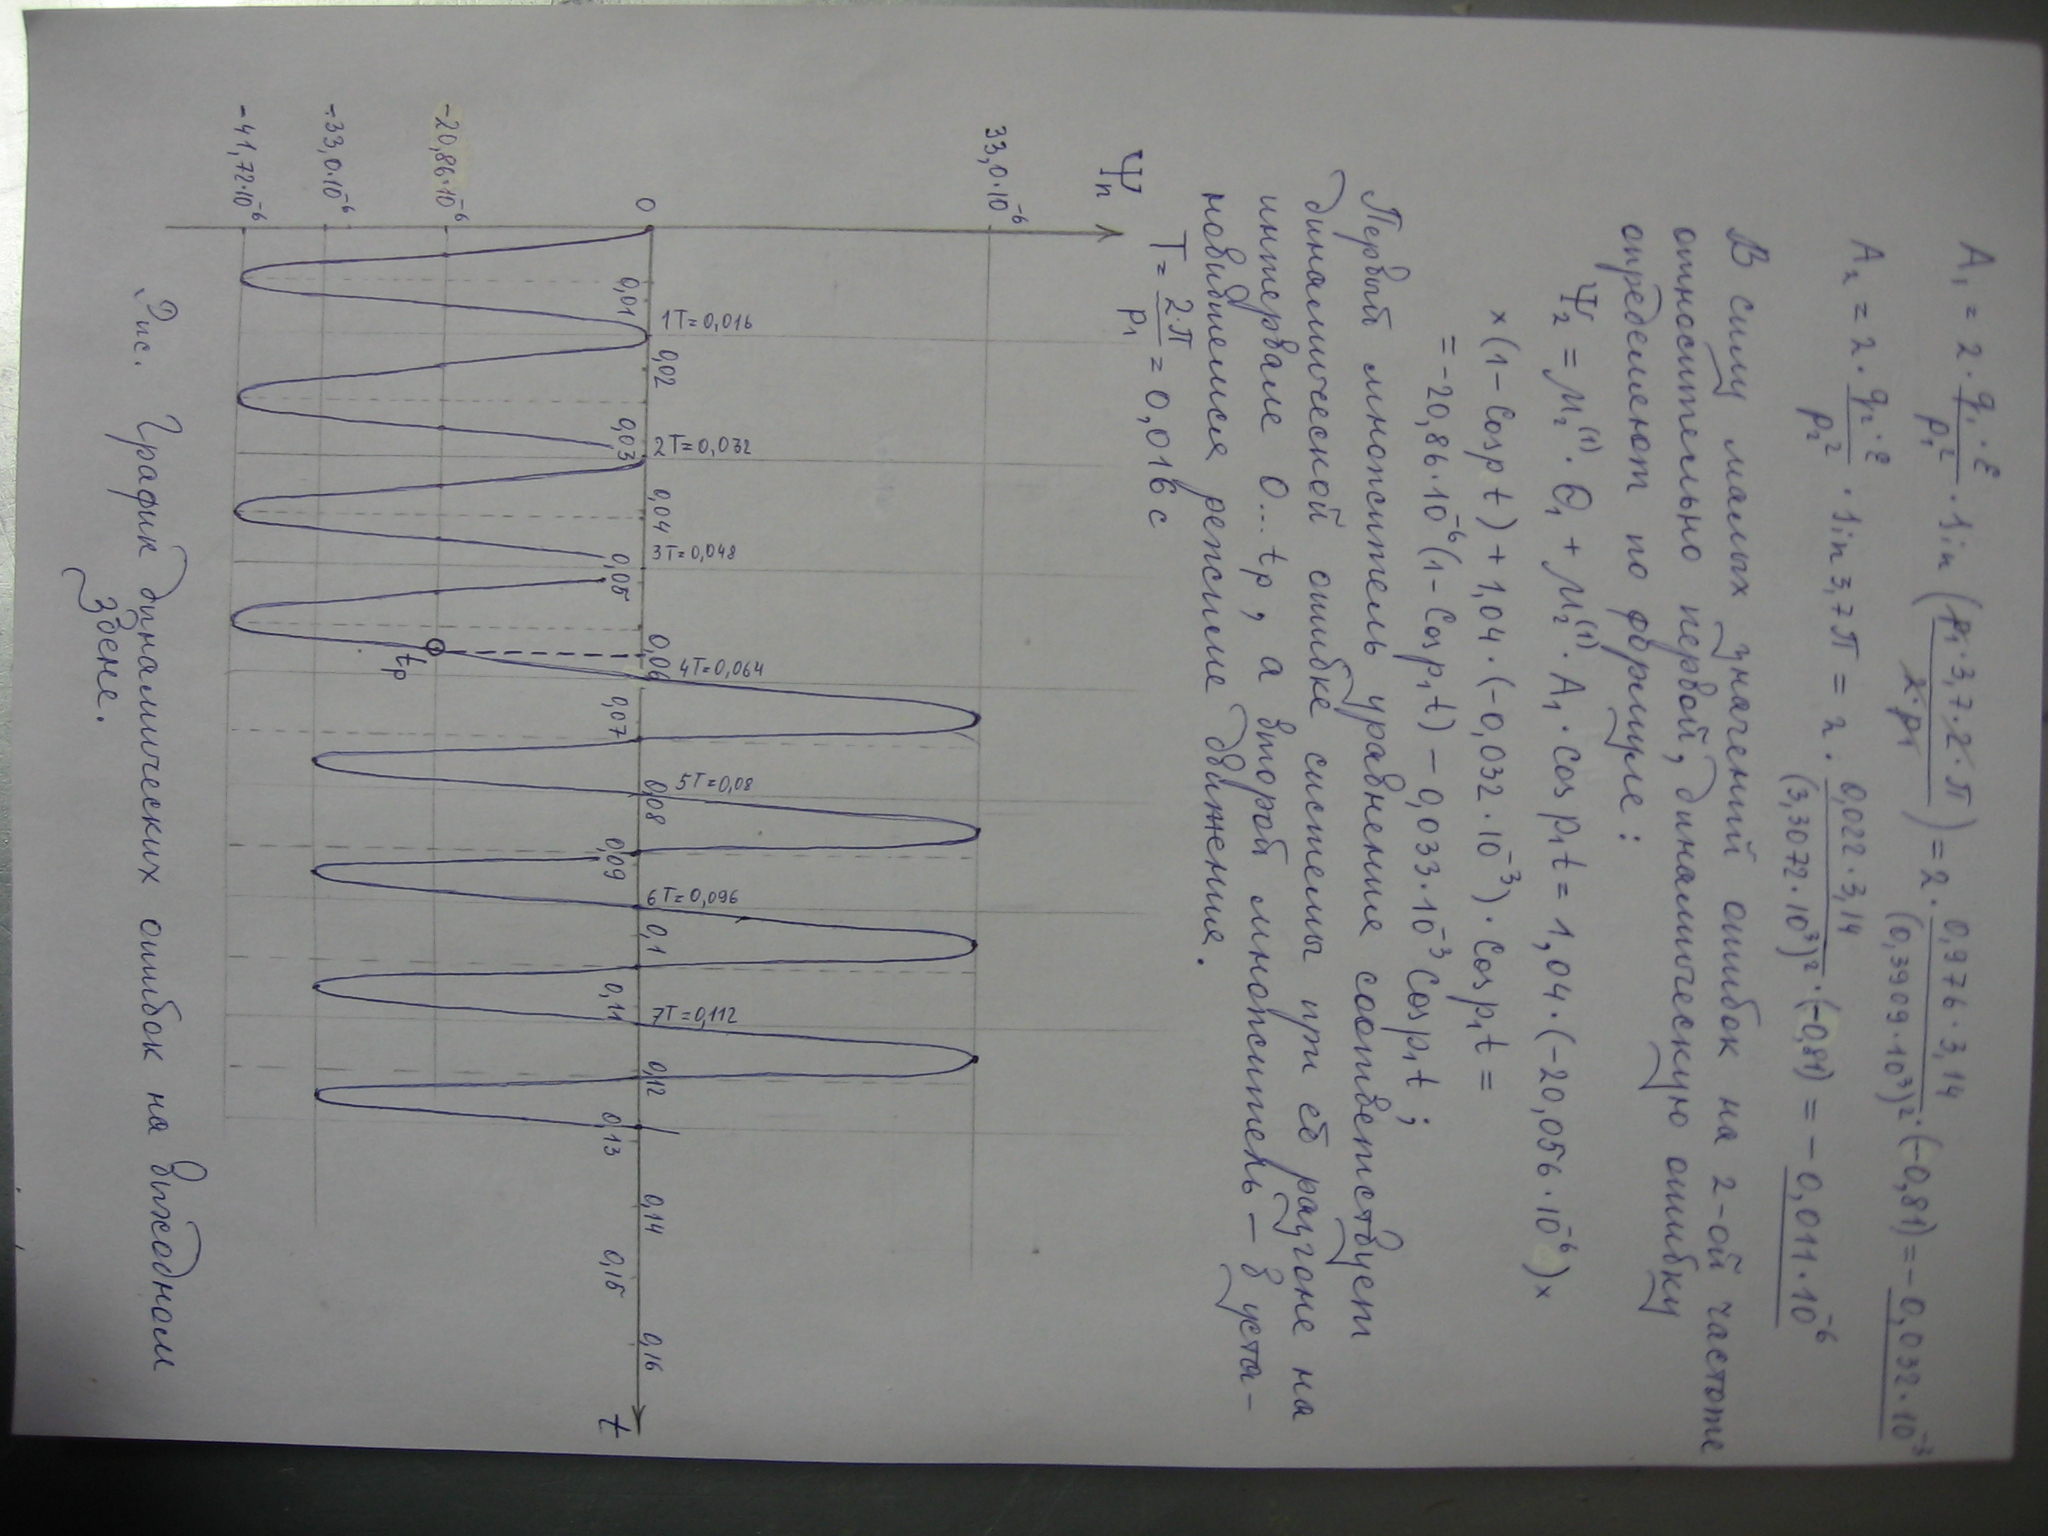 A₁ = 2 · q₁·ε/p₁² · sin (p₁·3,7·2·π/2·p₁) = 2 · 0,976·3,14/(0,3909·10³)² · (-0,81) = -0,032·10⁻³
A₂ = 2 · q₂·ε/p₂² · sin 3,7π = 2 · 0,022·3,14/(3,3072·10³)² · (-0,81) = -0,011·10⁻⁶
В силу малых значений ошибок на 2-ой частоте
относительно первой, динамическую ошибку
определяют по формуле:
Ψ₂ = μ₂⁽¹⁾ · Θ₁ + μ₂⁽¹⁾ · A₁ · cos p₁t = 1,04·(-20,056·10⁻⁶)×
×(1-Cosp t) + 1,04·(-0,032·10⁻³)·Cosp₁t =
= -20,86·10⁻⁶(1-Cosp₁t) - 0,033·10⁻³Cosp₁t;
Первый множитель уравнения соответствует
динамической ошибке системы при её разгоне на
интервале 0...tр, а второй множитель – в уста-
новившемся режиме движения.
T = 2·π/p₁ = 0,016 с
Ψn
33,0·10⁻⁶
0
-20,86·10⁻⁶
-33,0·10⁻⁶
-41,72·10⁻⁶
1T=0,016
2T=0,032
3T=0,048
4T=0,064
5T=0,08
6T=0,096
7T=0,112
0,01
0,02
0,03
0,04
0,05
0,06
0,07
0,08
0,09
0,1
0,11
0,12
0,13
0,14
0,15
0,16
t
tр
Рис. График динамических ошибок на выходном
звене.